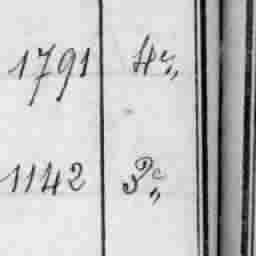 1791 4 c,,
1142 3 c,,